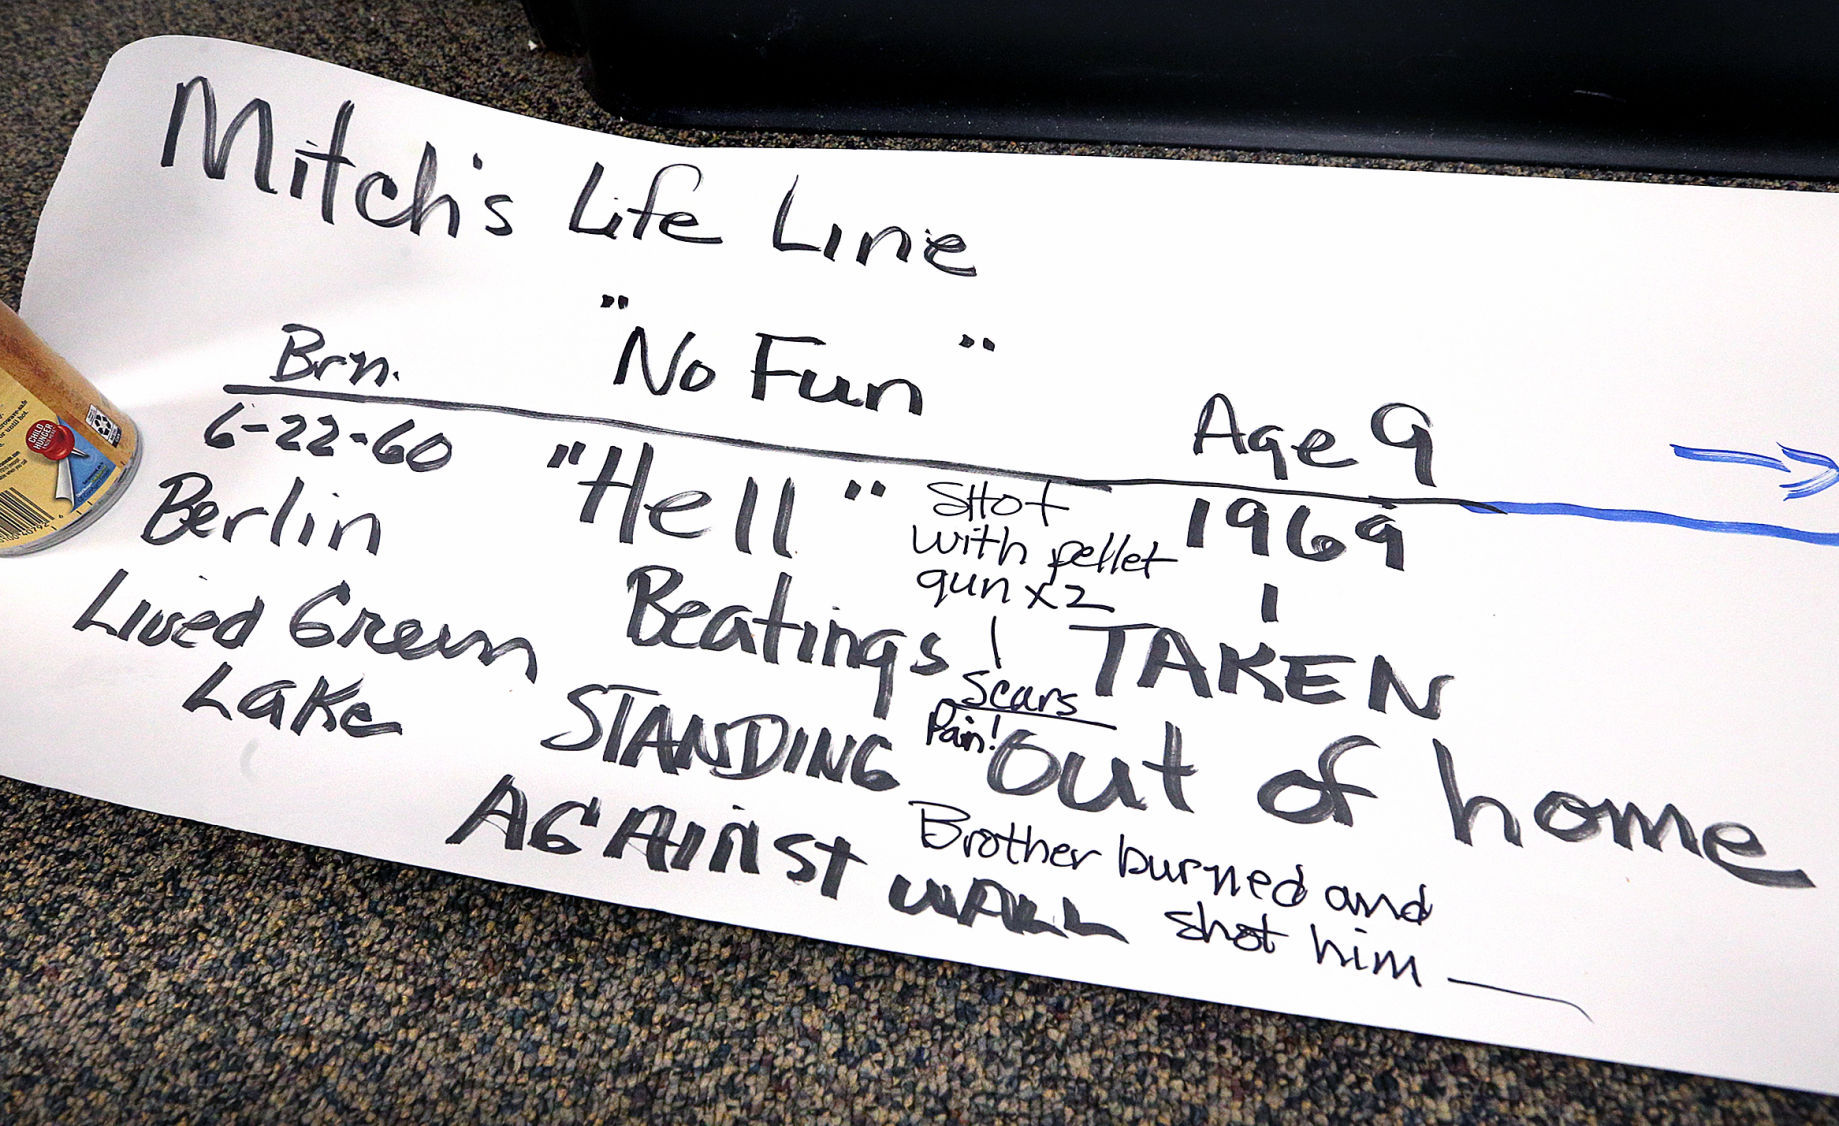 Mitch's Life Line
"No Fun"
Brn.
Age 9
6-22-60
Berlin
Lived Green
Lake
"Hell"
Beatings
STANDING
AGAINST WALL
SHot
with pellet
gun x2
Scars
Pain!
1969
TAKEN
out of home
Brother burned and
shot him
CHILD
HUNGER